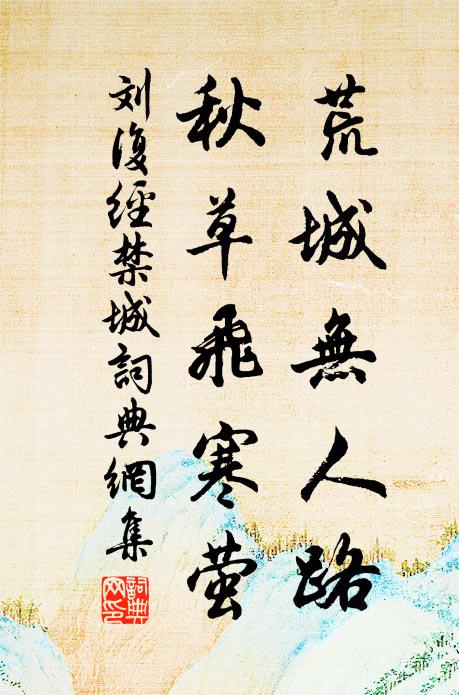 荒城無人路
秋草飛寒螢
刘復經禁城詞典網集
詞典網印